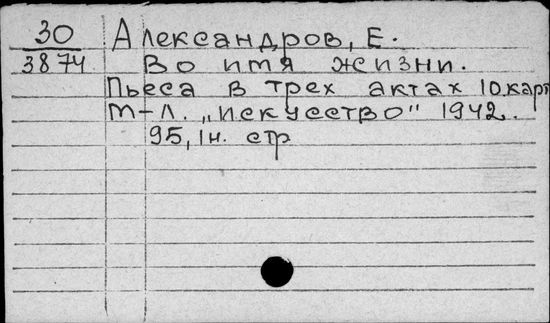 30 Александров, Е.
3874 Во имя жизни.
Пьеса в трех актах 10 карт
М-Л. „Искусство" 1942.
95, 1н. стр